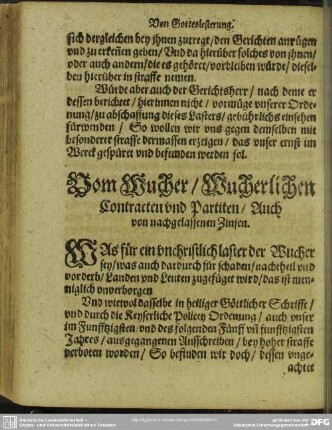 Von Gotteslesterung.
sich dergleichen bey jhnen zutregt / den Gerichten anrügen
vnd zu erkeñen geben / Vnd da hierüber solches von jhnen /
oder auch andern / die es gehöret / vorbleiben würde / diesel-
ben hierüber in straffe nemen.
Würde aber auch der Gerichtsherr / nach deme er
dessen berichtet / hierinnen nicht / vormüge vnserer Orde-
nung / zu abschaffung dieses Lasters / gebührlichs einsehen
fürwenden / So wollen wir vns gegen demselben mit
besonderer straffe dermassen erzeigen / das vnser ernst im
Werck gespüret vnd befunden werden sol.
Vom Wucher / Wucherlichen
Contracten vnd Partiten / Auch
von nachgelassenen Zinsen.
WAs für ein vnchristlich laster der Wucher
sey / was auch dardurch für schaden / nachtheil vnd
vorderb / Landen vnd Leuten zugefüget wird / das ist men-
niglich vnverborgen
Vnd wiewol dasselbe in heiliger Göttlicher Schrifft /
vnd durch die Keyserliche Policey Ordenung / auch vnser
im Funfftzigsten / vnd des folgenden Fünff vñ funfftzigsten
Jahres / ausgegangenen Ausschreiben / bey hoher straffe
verboten worden / So befinden wir doch / dessen vnge-
achtet